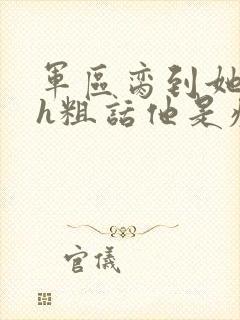 軍區脔到她
h粗話他是
官儀